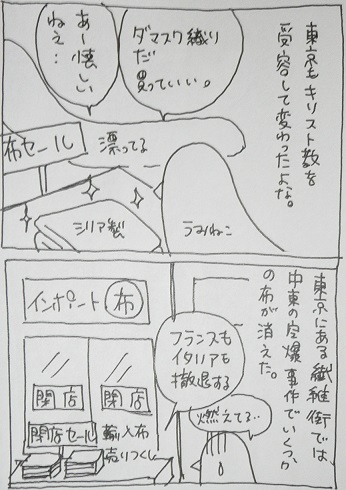 東京もキリスト教を
受容して変わったよな。
ダマスク織り
だ
買っていい。
あ〜懐しい
ねぇ…
布セール
漂ってる
シリア製
うみねこ
東京にある繊維街では、
中東の空爆事件でいくつか
の布が消えた。
インポート 布
フランスも
イタリアも
撤退する
燃えてる‥
閉店
閉店
閉店セール
輸入布
売りつくし